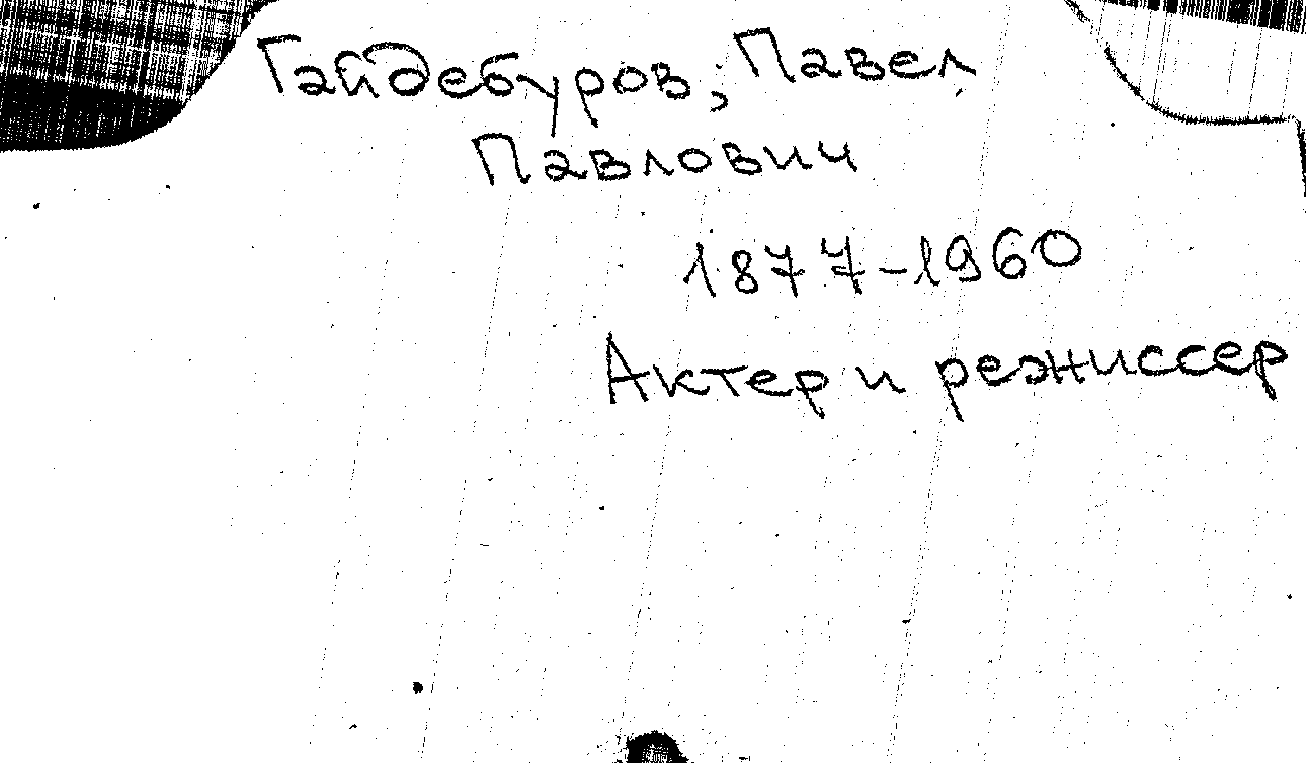 Гайдебуров, Павел
Павлович
1877-1960
Актер и режиссер